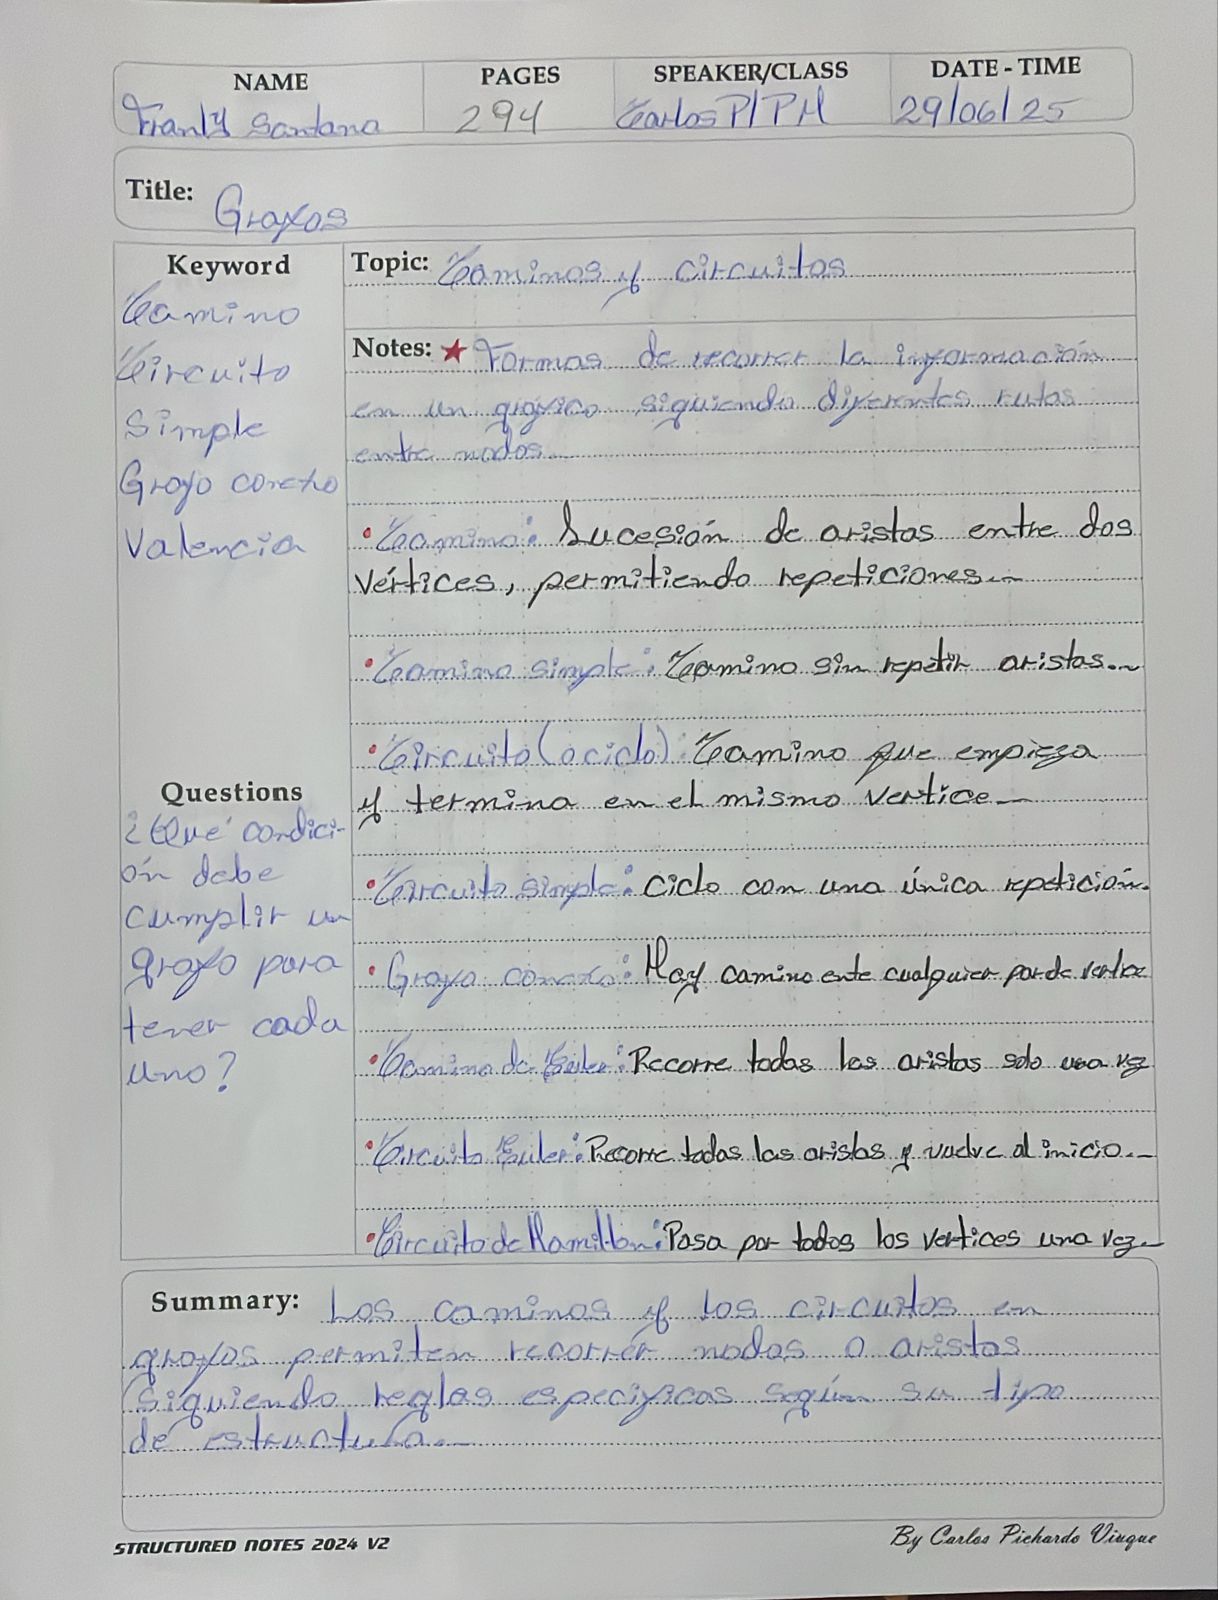 NAME PAGES SPEAKER/CLASS DATE - TIME
Franly Santana 294 Carlos P/PM 29/06/25
Title: Grafos
Keyword
Camino
Circuito
Simple
Grafo conexo
Valencia
Questions
¿Qué condici-
ón debe
cumplir un
grafo para
tener cada
uno?
Topic: Caminos y circuitos
Notes: ★ Formas de recorrer la información
en un gráfico siguiendo diferentes rutas
entre nodos.
• Camino: Sucesión de aristas entre dos
vértices, permitiendo repeticiones.
• Camino simple: Camino sin repetir aristas.
• Circuito (o ciclo): Camino que empieza
y termina en el mismo vertice.
• Circuito simple: Ciclo con una única repetición.
• Grafo conexo: Hay camino ente cualquier par de vertice
• Camino de Euler: Recorre todas las aristas solo una vez
• Circuito Euler: Recorre todas las aristas y vuelve al inicio.
• Circuito de Hamilton: Pasa por todos los vertices una vez.
Summary: Los caminos y los circuitos en
grafos permiten recorrer nodos o aristas
siguiendo reglas especificas según su tipo
de estructura.
STRUCTURED NOTES 2024 V2
By Carlos Pichardo Viuque